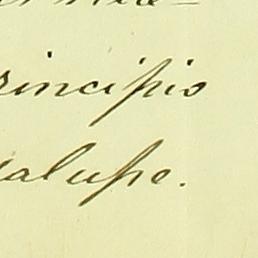 rincipio
alupe.